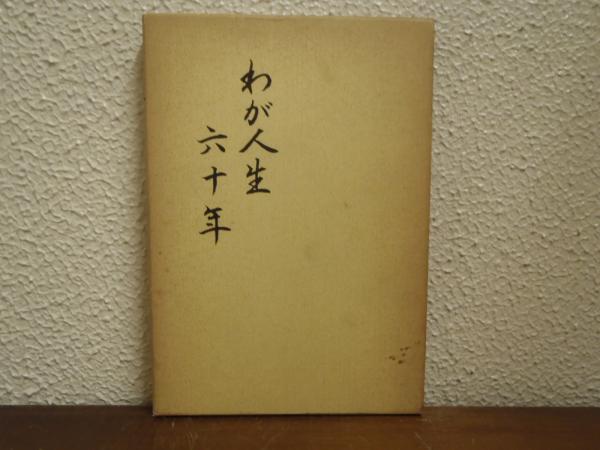 わが人生
六十年